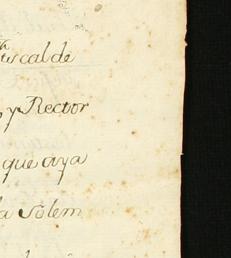 fiscal de
y Rector
que aya
la Solem